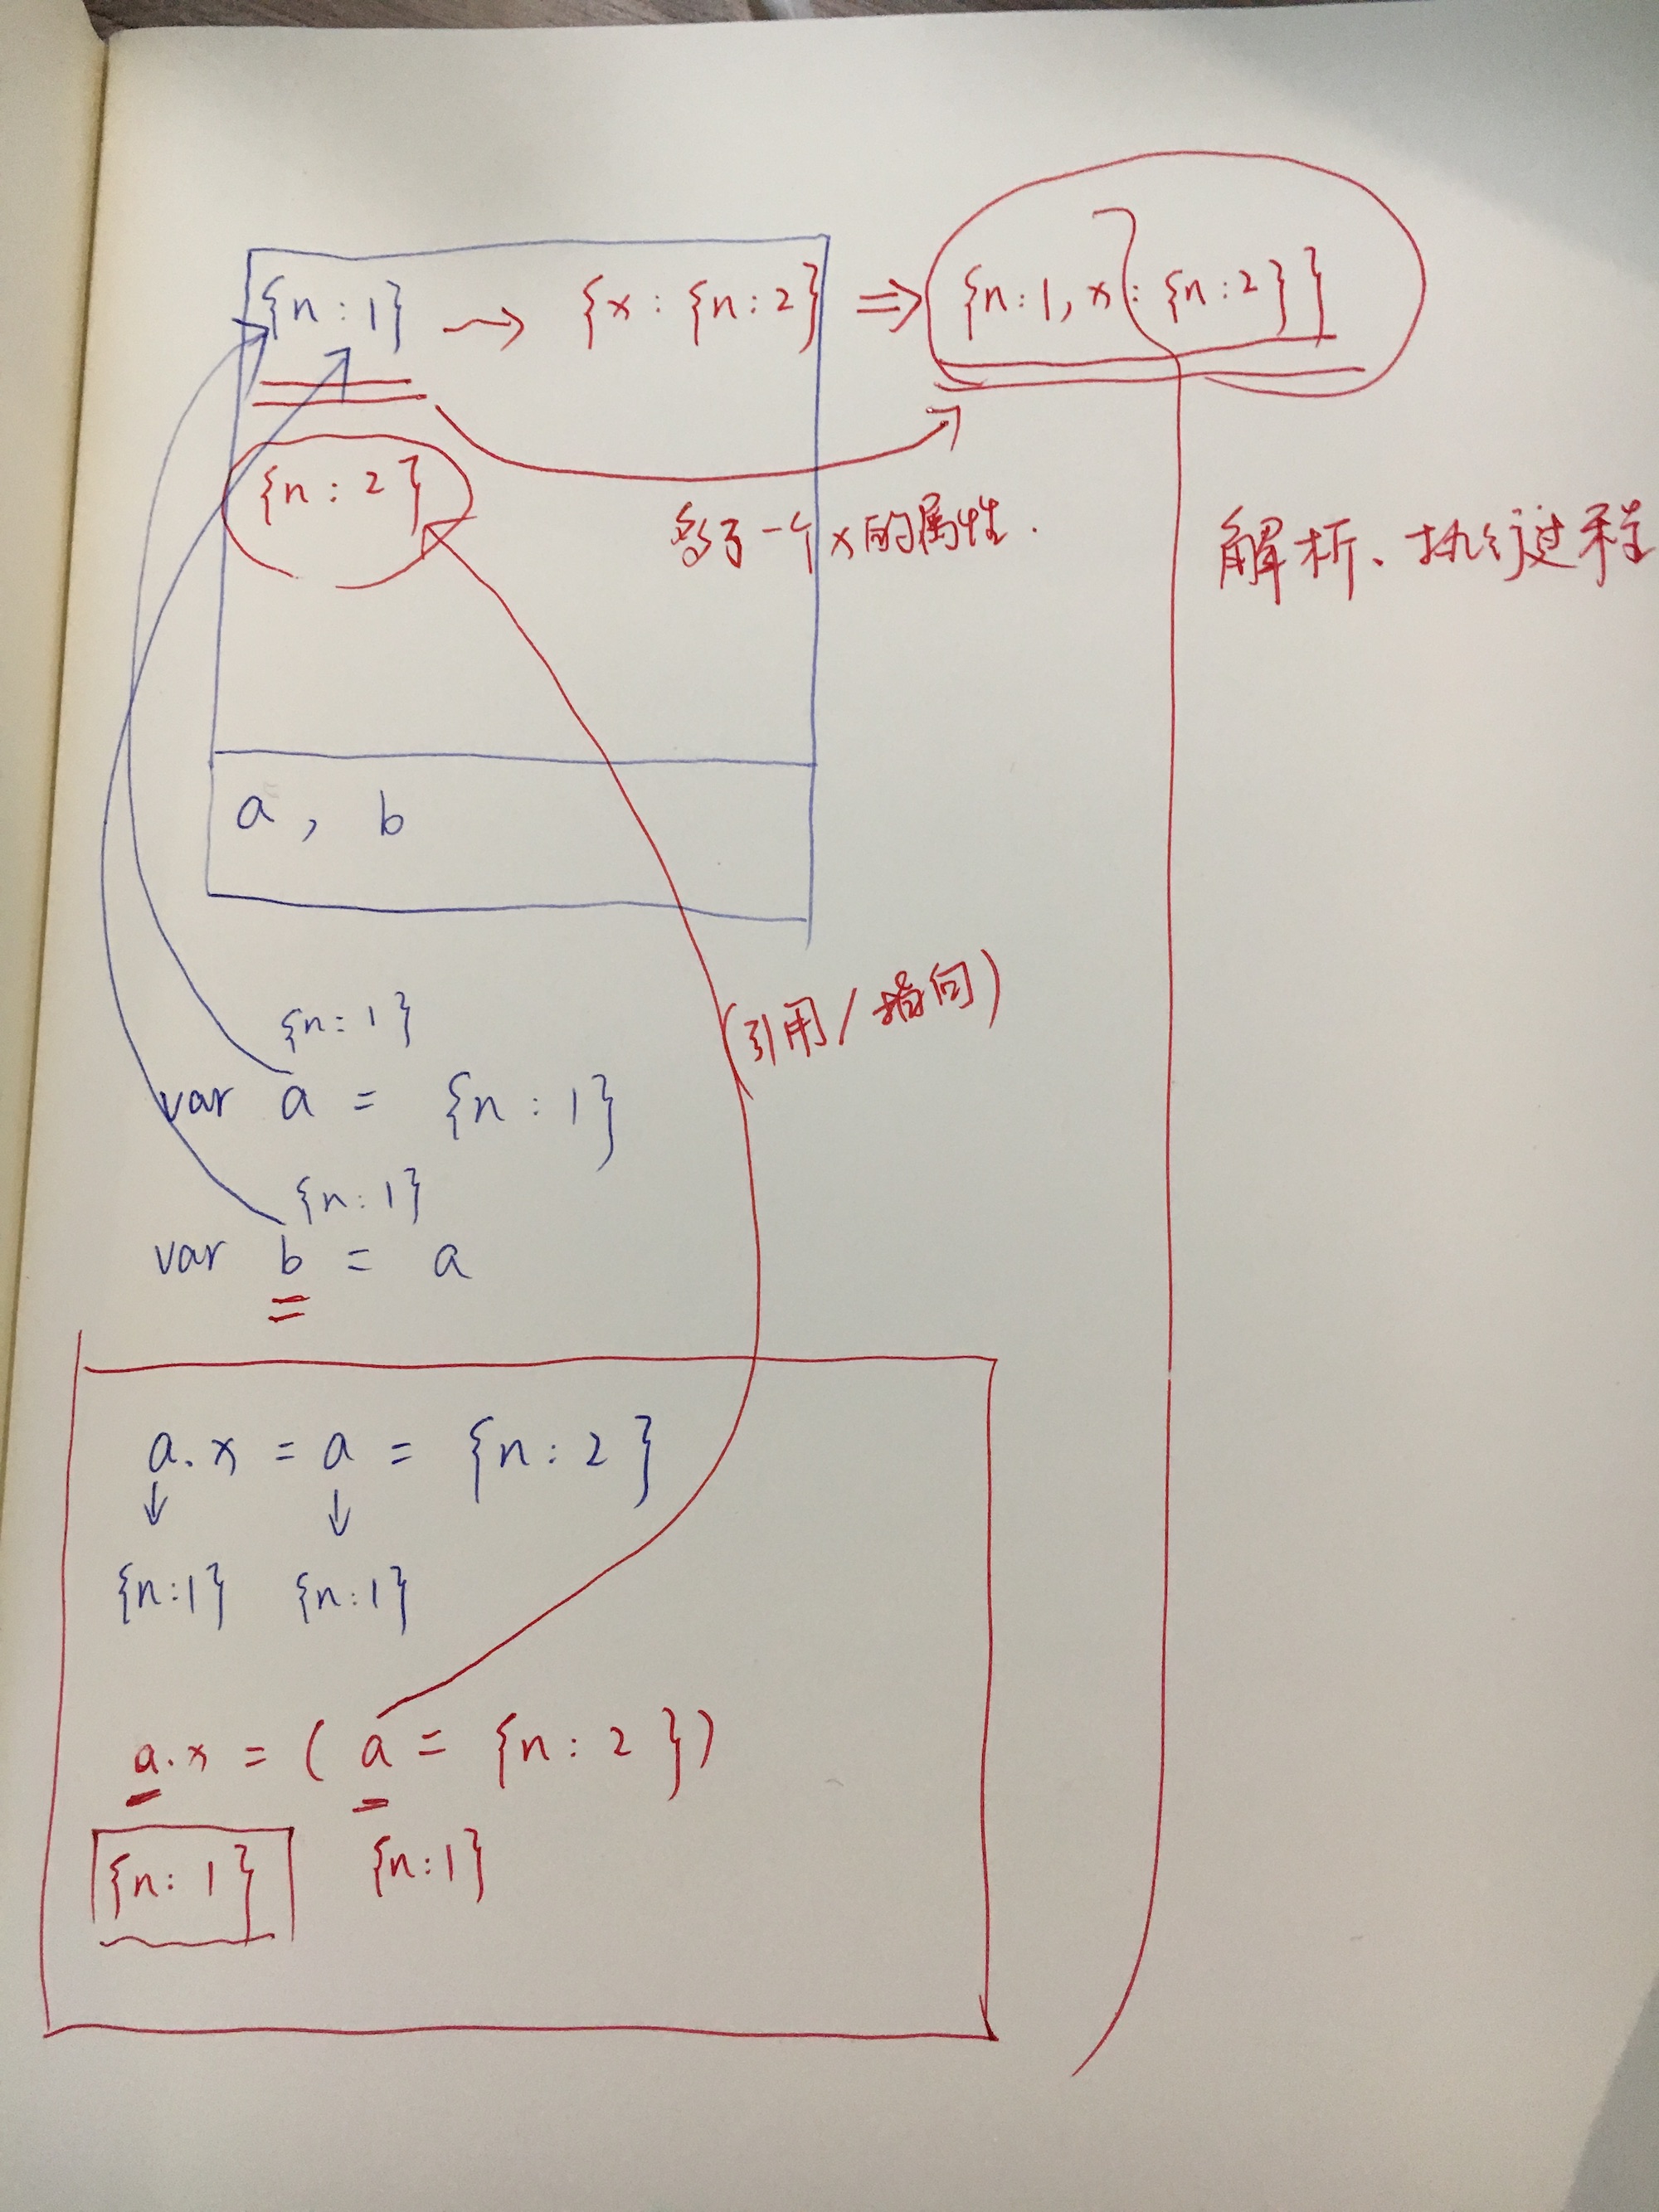 {n:1} → {x:{n:2} ⇒ {n:1,x:{n:2}}
{n:2}
多了一个x的属性.
解析、执行过程
a, b
(引用/指向)
{n:1}
var a = {n:1}
{n:1}
var b = a
a.x = a = {n:2}
↓ ↓
{n:1} {n:1}
a.x = (a = {n:2})
{n:1} {n:1}